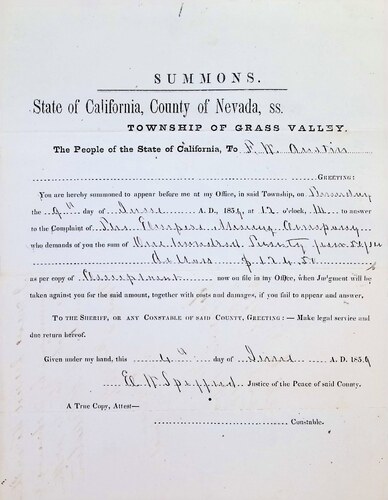 SUMMONS.
State of California, County of Nevada, ss.
TOWNSHIP OF GRASS VALLEY.
The People of the State of California, To P. W. Austin
GREETING:
You are hereby summoned to appear before me at my Office, in said Township, on
the 9th day of June A. D., 1859, at 12 o'clock, M. to answer
to the Complaint of The Empire Mining Company
who demands of you the sum of One Hundred Twenty four 50/100
dollars $124.50
as per copy of now on file in my Office, when Judgment will be
taken against you for the said amount, together with costs and damages, if you fail to appear and answer.
TO THE SHERIFF, OR ANY CONSTABLE OF SAID COUNTY, GREETING:—Make legal service and
due return hereof.
Given under my hand, this 4th day of June A. D. 1859
E. W. Justice of the Peace of said County.
A True Copy, Attest—
Constable.